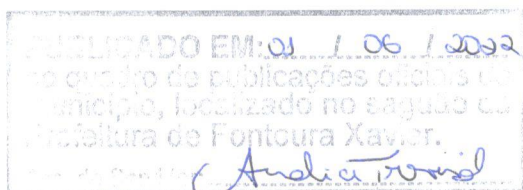 PUBLICADO EM: 01 / 06 / 2022
no quadro de publicações oficiais do
município, localizado no saguão da
Prefeitura de Fontoura Xavier.